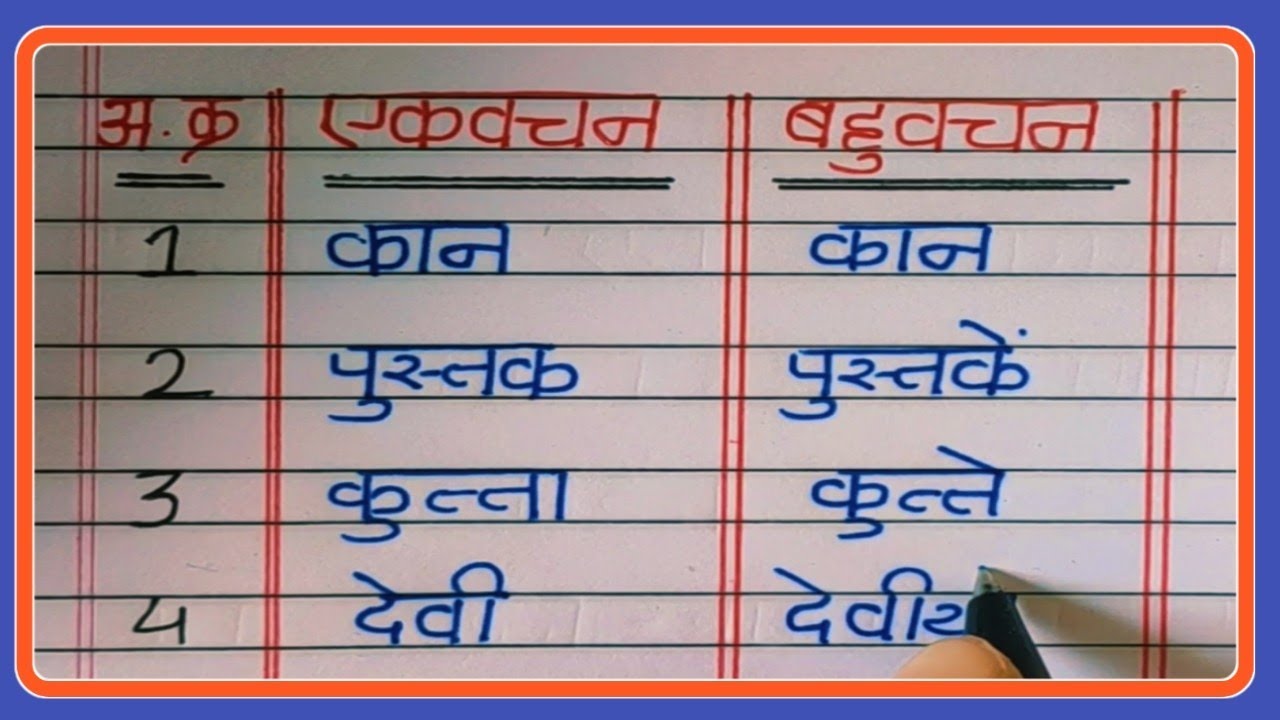 अ.क्र एकवचन बहुवचन
1 कान कान
2 पुस्तक पुस्तकें
3 कुत्ता कुत्ते
4 देवी देवीय